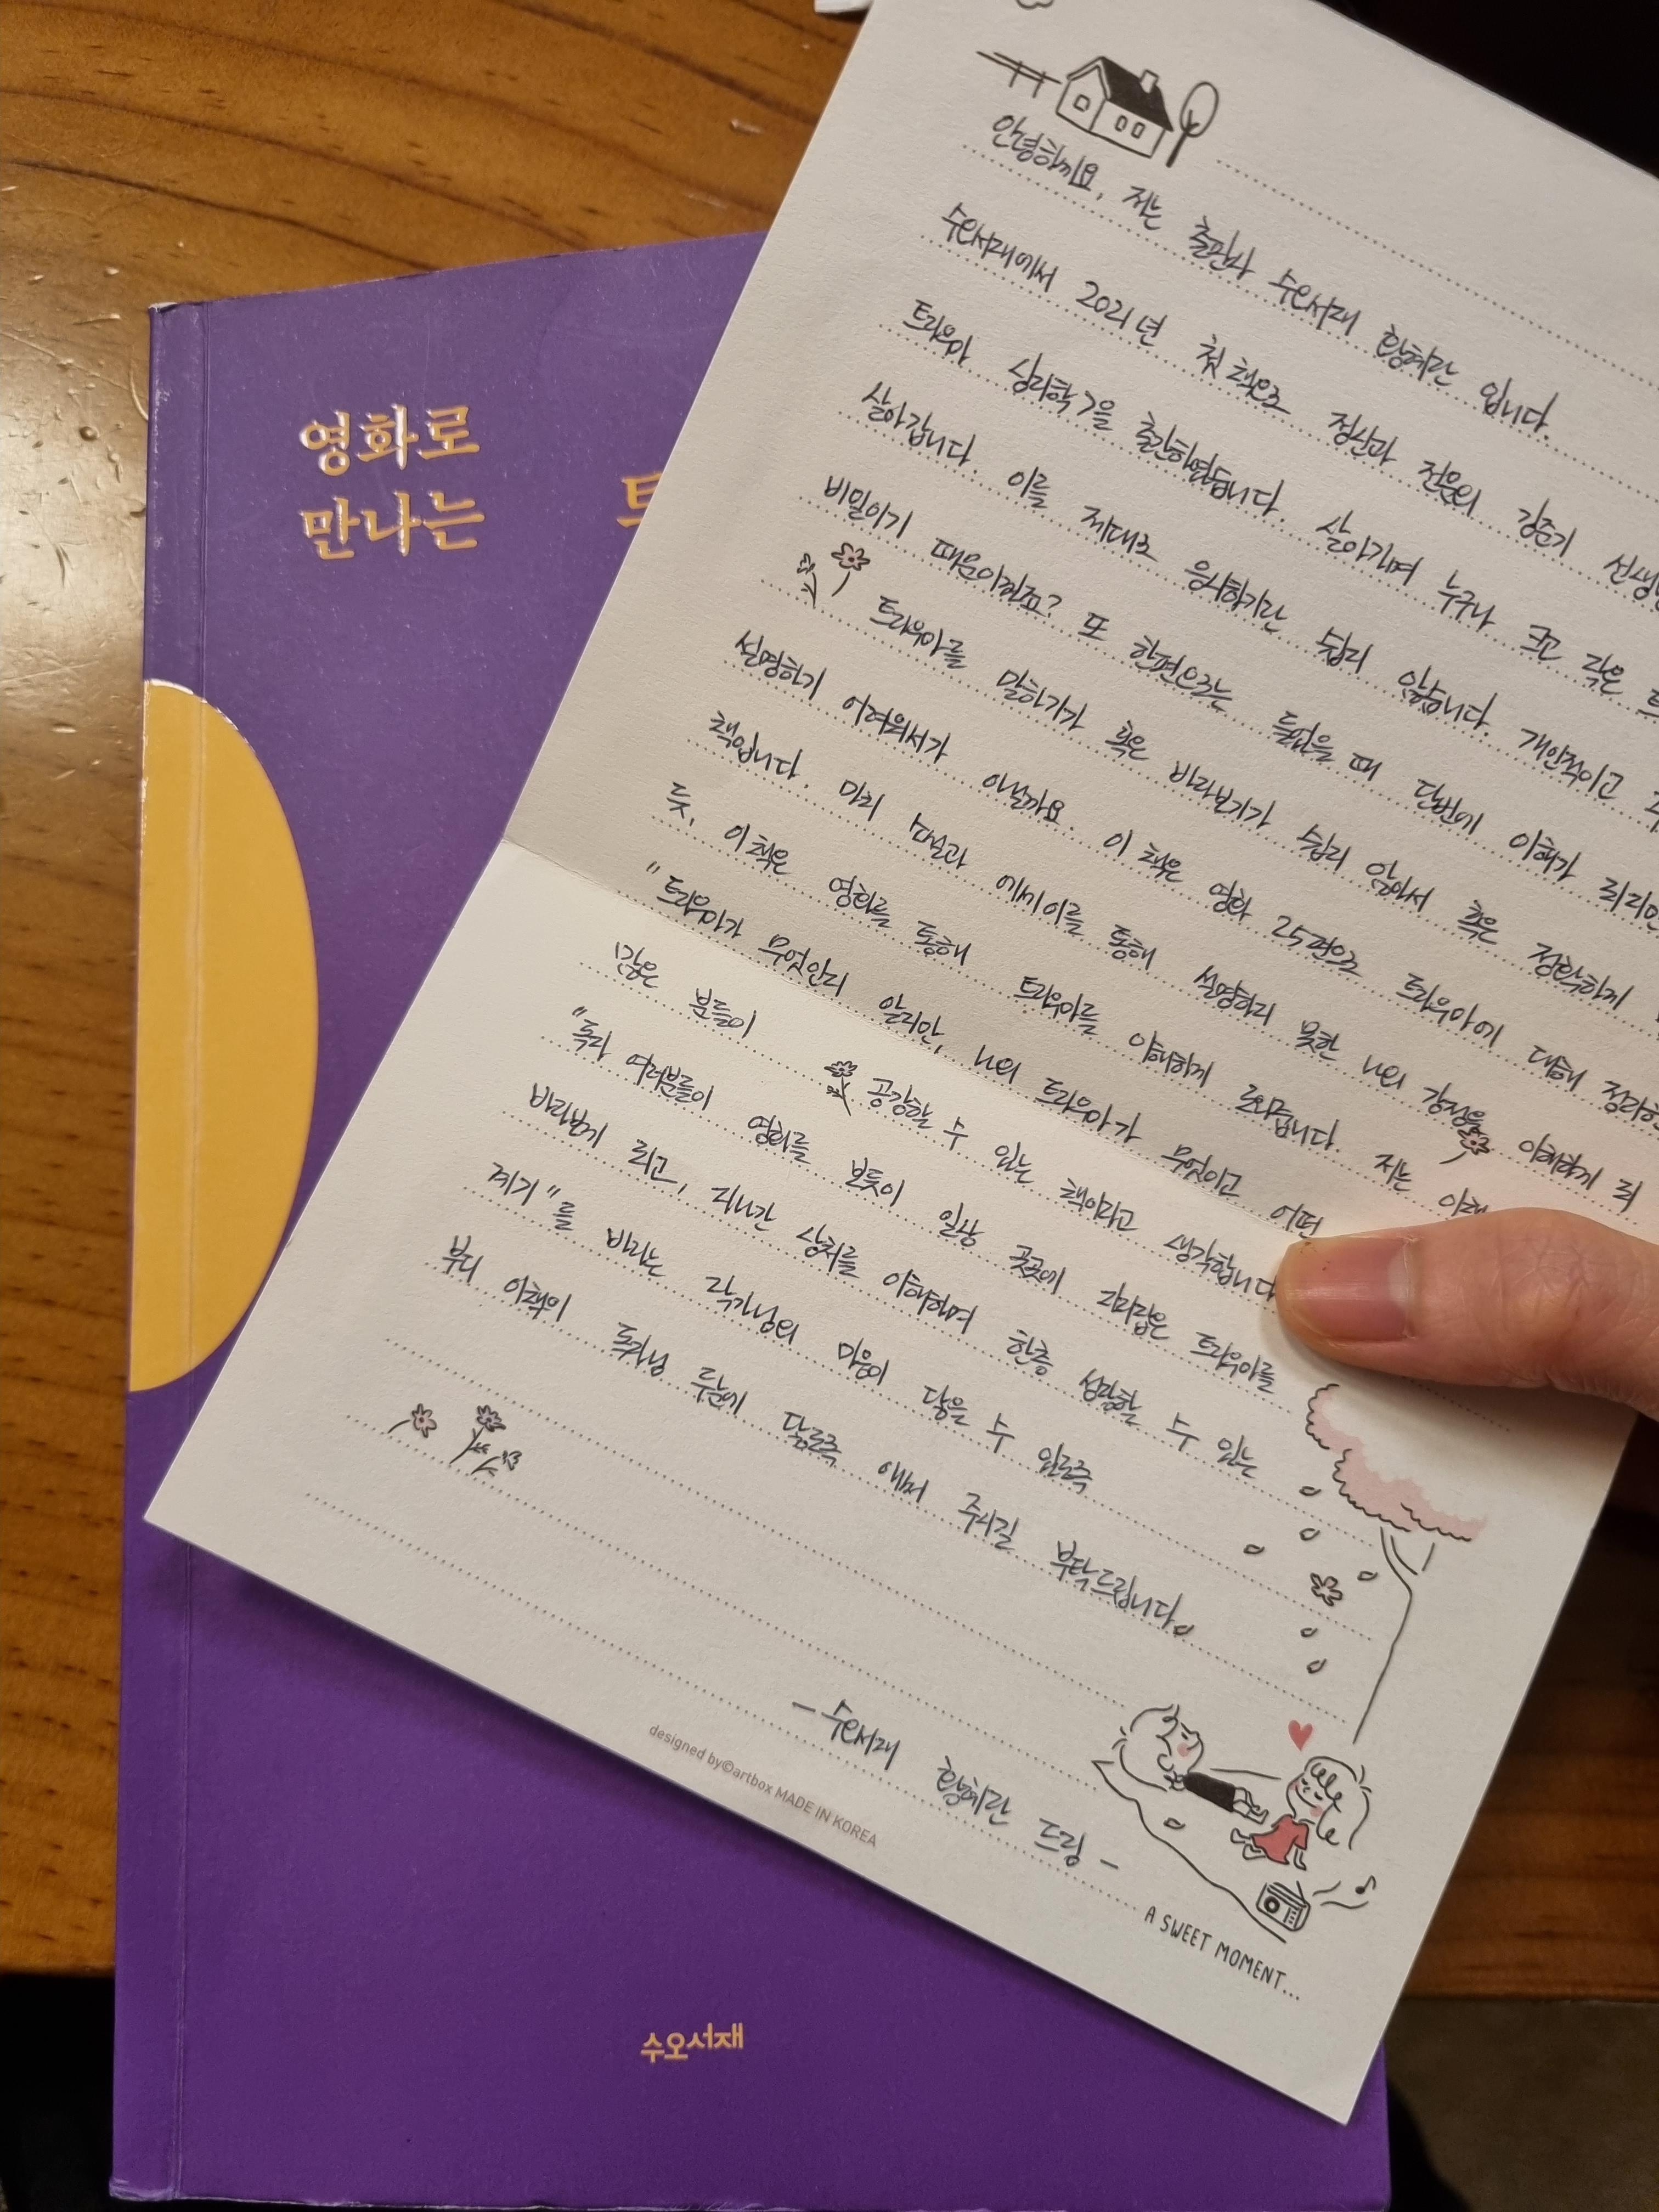 영화로
만나는
트
수오서재
안녕하세요, 저는 출판사 수오서재 황혜란 입니다.
수오서재에서 2021년 첫 책으로 정신과 전문의 김준기 선생님
트라우마 심리학>을 출간하였습니다. 살아가며 누구나 크고 작은 트
살아갑니다. 이를 제대로 응시하기란 쉽지 않습니다. 개인적이고
비밀이기 때문이겠죠? 또 한편으로는 들었을 때 단번에 이해가
트라우마를 말하기가 혹은 바라보기가 쉽지 않아서 혹은 정확하게
설명하기 어려워서가 아닐까요. 이 책은 영화 25편으로 트라우마에 대해 정리한
책입니다. 마치 소설과 에세이를 통해 설명하지 못한 나의 감정을 이해하게 되
듯, 이 책은 영화를 통해 트라우마를 이해하게 도와줍니다. 저는 아래
"트라우마가 무엇인지 알지만, 나의 트라우마가 무엇이고 어떤
많은 분들이 공감할 수 있는 책이라고 생각합니다
"독자 여러분들이 영화를 보듯이 일상 곳곳에 자리잡은 트라우마를
바라보게 되고, 지나간 상처를 이해하며 한층 성장할 수 있는
계기"를 바라는 작가님의 마음이 닿을 수 있도록
부디 이책이 독자님 두눈에 닿도록 애써 주시길 부탁드립니다.
- 수오서재 황혜란 드림 -
designed by©artbox MADE IN KOREA
A SWEET MOMENT...